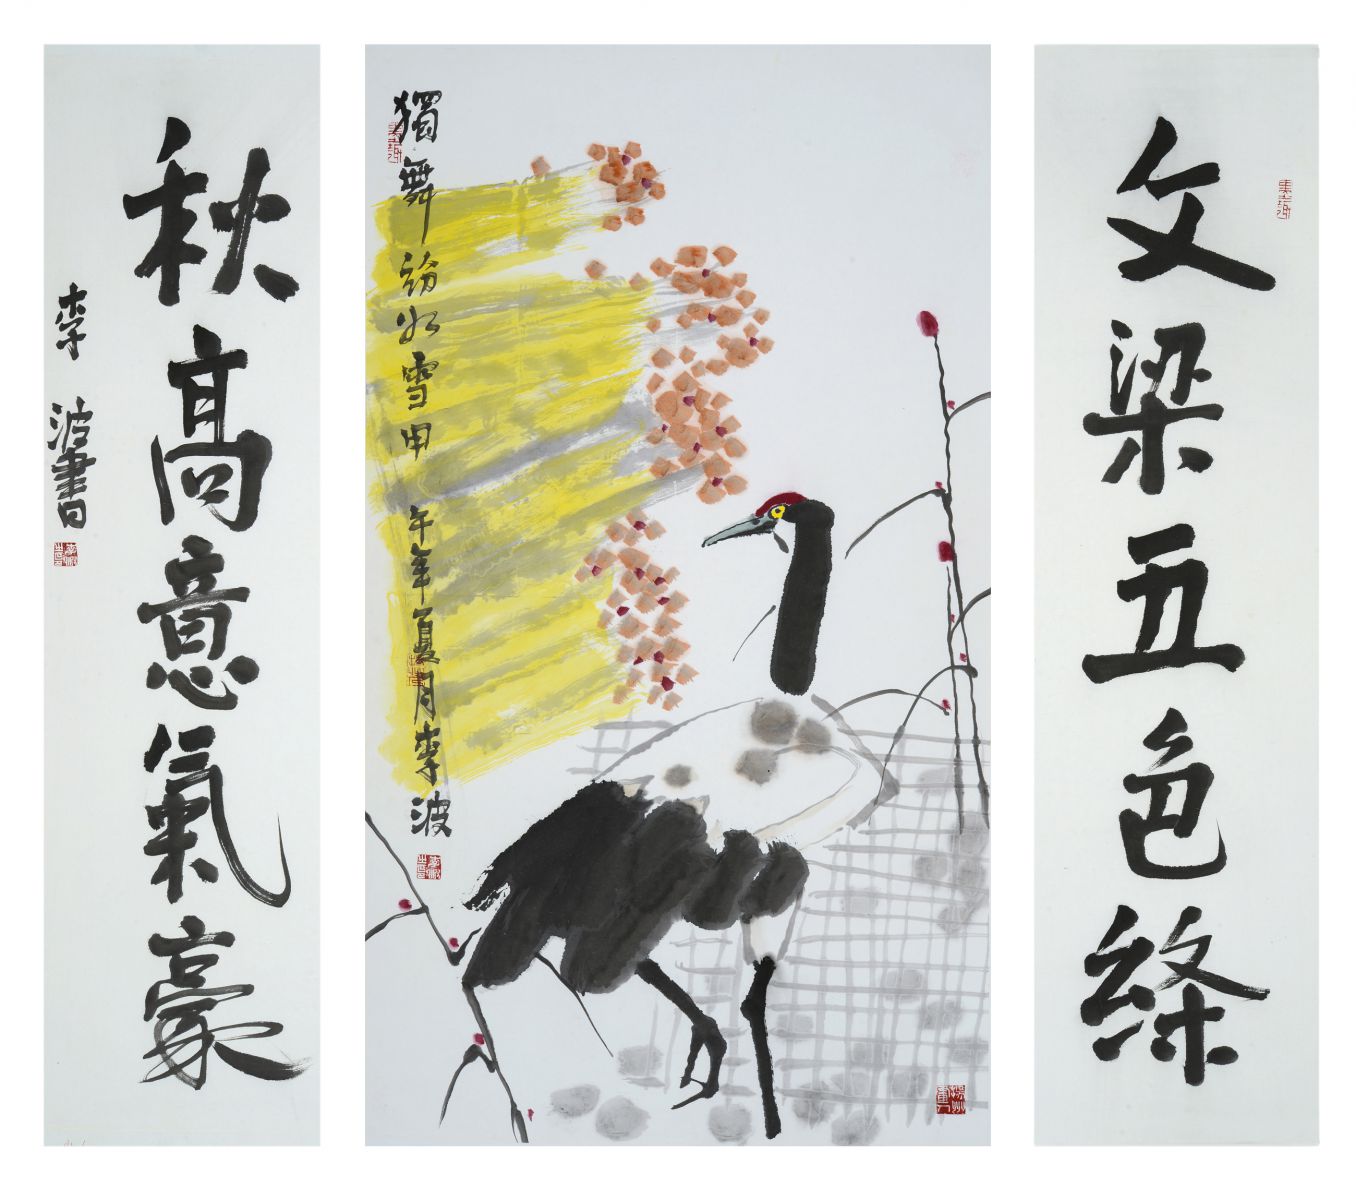 文梁五色絛
獨舞紛如雪甲午年夏月李波
秋高意氣豪
李波書